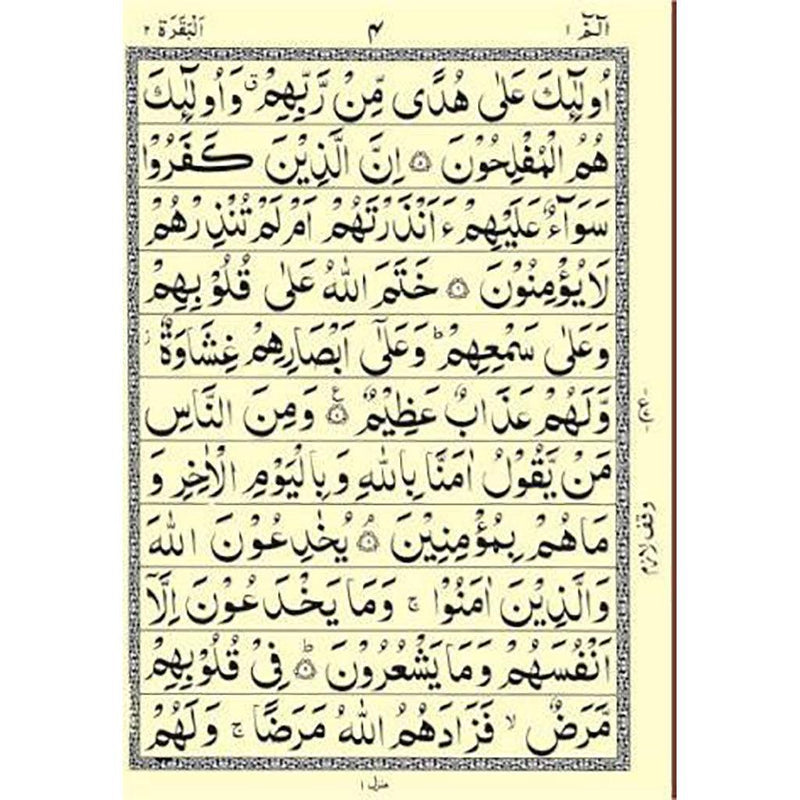 الٓمّٓ ۱ ۴ اَلْبَقَرَة ۲
اُولٰٓئِكَ عَلٰى هُدًى مِّنْ رَّبِّهِمْ ق وَاُولٰٓئِكَ
هُمُ الْمُفْلِحُوْنَ ۝۵ اِنَّ الَّذِيْنَ كَفَرُوْا
سَوَآءٌ عَلَيْهِمْ ءَاَنْذَرْتَهُمْ اَمْ لَمْ تُنْذِرْهُمْ
لَا يُؤْمِنُوْنَ ۝۶ خَتَمَ اللهُ عَلٰى قُلُوْبِهِمْ
وَعَلٰى سَمْعِهِمْ ط وَعَلٰٓى اَبْصَارِهِمْ غِشَاوَةٌ ز
وَّلَهُمْ عَذَابٌ عَظِيْمٌ ۝۷ ع وَمِنَ النَّاسِ
مَنْ يَّقُوْلُ اٰمَنَّا بِاللهِ وَبِالْيَوْمِ الْاٰخِرِ وَ
مَا هُمْ بِمُؤْمِنِيْنَ ۝۸ م يُخٰدِعُوْنَ اللهَ
وَالَّذِيْنَ اٰمَنُوْا ج وَمَا يَخْدَعُوْنَ اِلَّآ
اَنْفُسَهُمْ وَمَا يَشْعُرُوْنَ ۝۹ ط فِيْ قُلُوْبِهِمْ
مَّرَضٌ لا فَزَادَهُمُ اللهُ مَرَضًا ج وَلَهُمْ
وقف لازم
منزل ۱